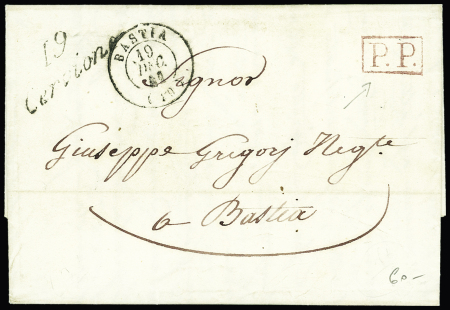 19
Cervione
BASTIA
19
DEC.
P.P.
Signor
Giuseppe Gregorj Negte.
a Bastia
60-